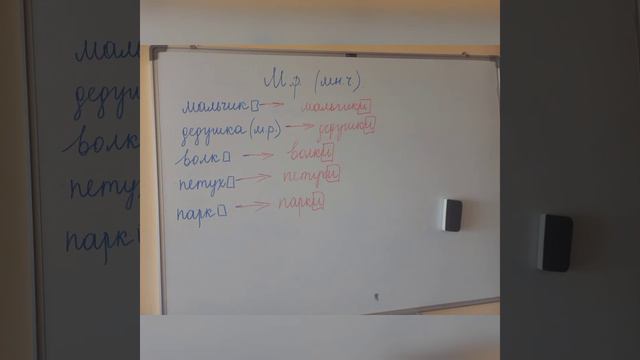 М.р (мн.ч)
мальчик → мальчики
дедушка (м.р.) → дедушки
волк → волки
петух → петухи
парк → парки